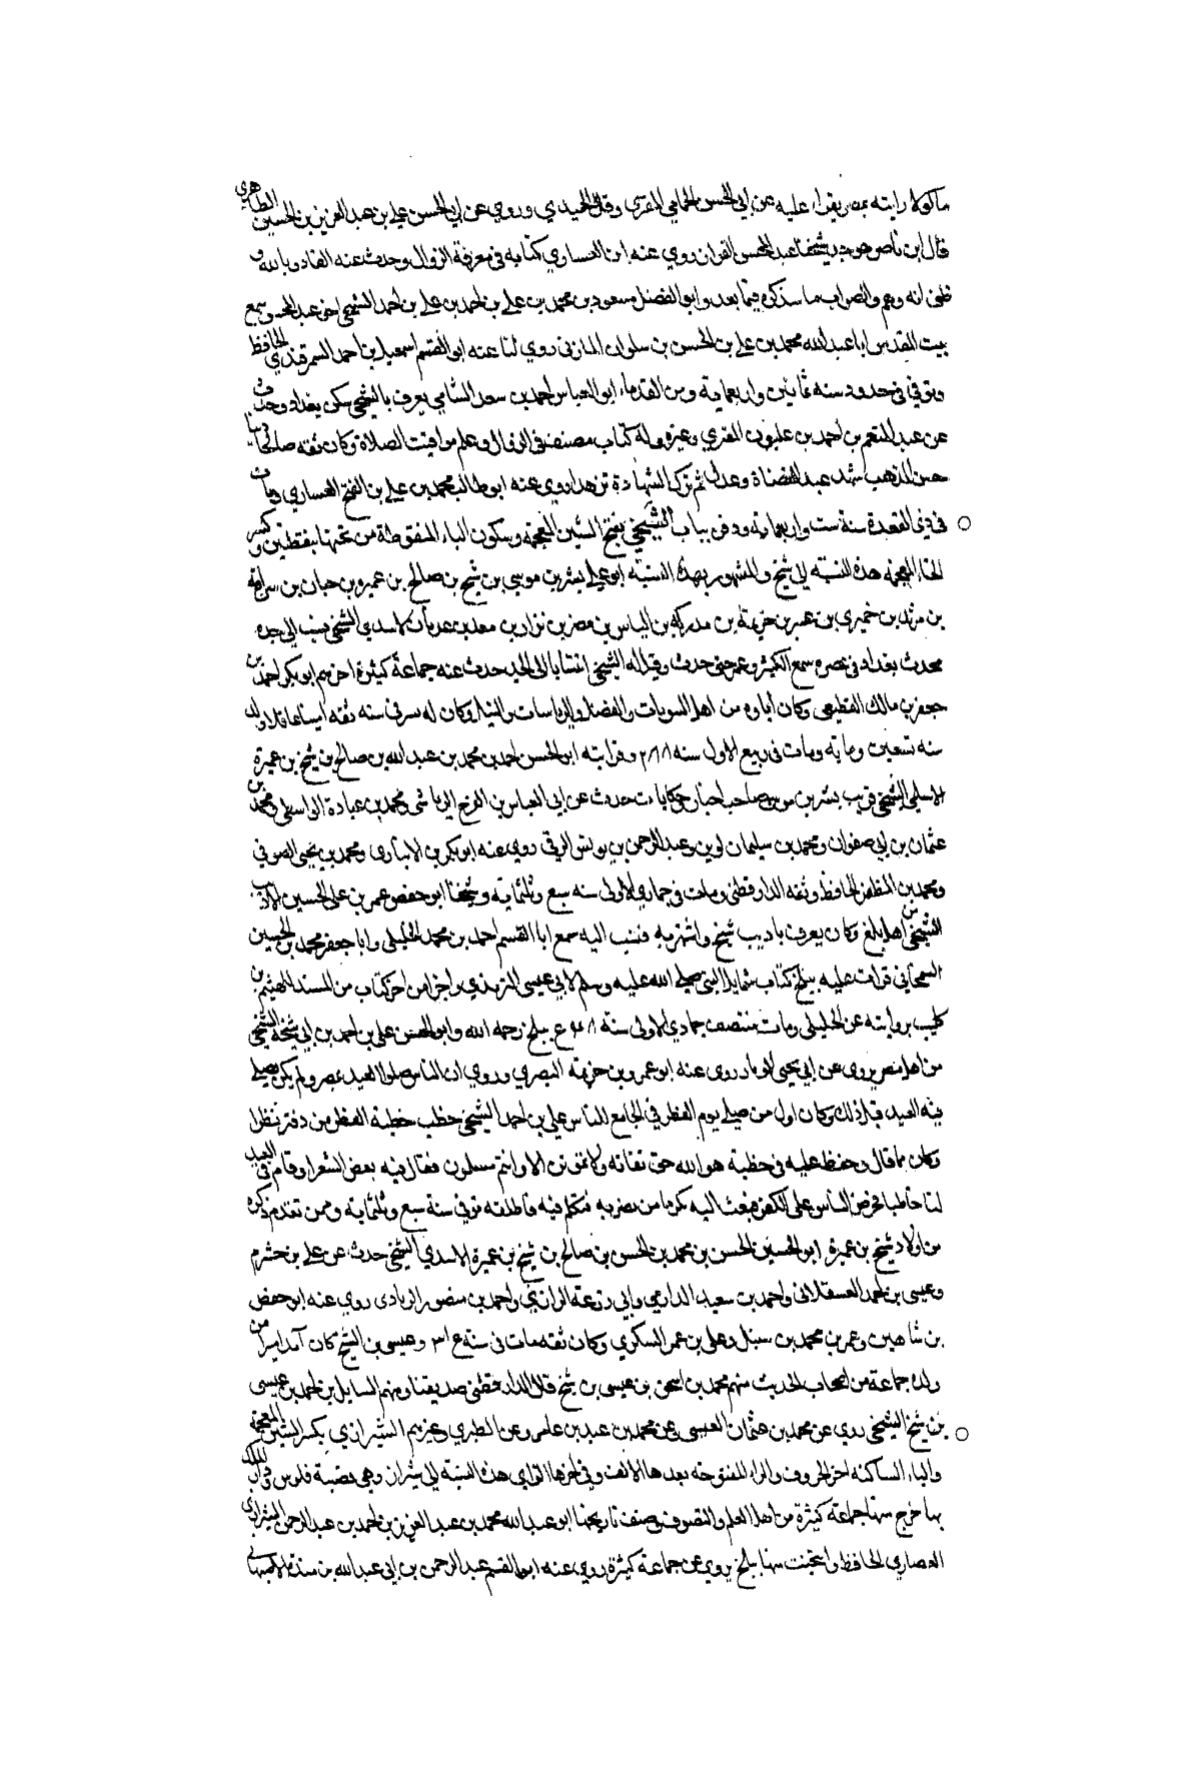 ماكولا رايته بمصر يقراء عليه عن ابي الحسن الحمامي المقرى وقال الحميدي وروى عن ابي الحسن علي بن عبد العزيز بن الحسين الطاهري
قال ابن ناصر هو جد شيخنا عبد المحسن القزاز روي عنه ابن العساري كتابه في معرفة الزوال وحدث عنه القادر بالله و
ظني انه وهم والصواب ما سنذكره فيما بعد وابو الفضل مسعود بن محمد بن علي بن احمد بن علي بن احمد الشيحي اخي عبد المحسن سمع
بيت المقدس ابا عبد الله محمد بن علي بن الحسن بن سلوان المازني روي لنا عنه ابو القسم اسمعيل بن احمد السمرقندي الحافظ
وتوفي في حدود سنه ثمانين واربعماية ومن القدماء ابو العباس احمد بن سعد الشامي يعرف بالشيحي سكن بغداد وحدث
عن عبد المنعم بن احمد بن غلبون المقري وغيره وله كتاب مصنف في الزوال وعلم مواقيت الصلاة وكان ثقه صالحا دينا
حسن المذهب شهد عند القضاة وعدل ثم ترك الشهادة تزهدا روي عنه ابو طالب محمد بن علي بن الفتح العساري ومات
في ذي القعدة سنة ست واربعماية ودفن بباب الشيخي بفتح الشين المعجمة وسكون الياء المنقوطة من تحتها بنقطتين وكسر
الخاء المعجمة هذه النسبة الي شيخ والمشهور بهذه النسبة ابو علي بشر بن موسي بن شيخ بن صالح بن عميره بن حبان بن سراقة
بن مرثد بن حميري بن عمير بن خزيمة بن مدركة بن الياس بن مضر بن نزار بن معد بن عدنان الاسدي الشيخي نسب الي جده
محدث بغداد في عصره سمع الكثير وعمر حتى حدث وقيل له الشيخي انتسابا الى الجد حدث عنه جماعة كثيرة اخرهم ابو بكر احمد بن
جعفر بن مالك القطيعي وكان اباوه من اهل البيوتات والفضل والرياسات والنبل وكان له سرفى سنه ثقه امينا عاقلا ولد
سنه تسعين وماية ومات في ربيع الاول سنه ٢٨٨ وقرابته ابو الحسن احمد بن محمد بن عبد الله بن صالح بن شيخ بن عميرة
الاسدي الشيخي قريب بشر بن موسي صاحب اخبار وحكايات حدث عن ابي العباس بن الفرج الرياشي ومحمد بن عبادة الواسطي ومحمد بن
عثمان بن ابي صفوان ومحمد بن سليمان لوين وعبد الرحمن بن يونس الرقي روي عنه ابو بكر بن الانباري ومحمد بن يحيى الصوفي
ومحمد بن المظفر الحافظ وثقه الدارقطني ومات في جمادي الاولي سنه سبع وثلثماية وشيخنا ابو حفص عمر بن علي الحسين الاديب
الشيخي من اهل بلخ وكان يعرف باديب شيخ واشتهر به فنسب اليه سمع ابا القسم احمد بن محمد الخليلي وابا جعفر محمد بن الحسين
السمنجاني قرات عليه ببلخ كتاب شمايل النبي صلي الله عليه وسلم لابي عيسى الترمذي واجزا من اخر كتاب من المسند للهيثم بن
كليب بروايته عن الخليلي ومات منتصف جمادي الاولى سنة ٥٤٨ ببلخ رحمه الله وابو الحسن علي بن احمد بن ابي شيخة الشيخي
من اهل مصر يروي عن ابي يحيى الوباد روي عنه ابو عمرو بن خزيمة البصري وروي ان الناس صلوا العيد بمصر ولم يكن يصلي
فيه العيد قبل ذلك وكان اول من صلي يوم الفطر في الجامع للناس علي بن احمد الشيخي خطب خطبة الفطر من دفتر نظرا
وكان مما قال وحفظ عليه في خطبة هو الله حق تقاته ولا تموتن الا وانتم مسلمون فقال فيه بعض الشعرا وقام في العيد
لنا خاطبا فحرض الناس على الكفر فبعث اليه بكرما من يضربه فتكلم فيه فاطلقه توفي سنة سبع وثلثماية وممن تقدم ذكره
من اولاد شيخ بن عميرة ابو الحسين الحسن بن محمد بن الحسن بن صالح بن شيخ بن عميرة الاسدي الشيخي حدث عن علي بن خشرم
وعيسى بن احمد العسقلاني واحمد بن سعيد الدارمي وابي زرعة الرازي واحمد بن منصور الرمادي روي عنه ابو حفص
بن شاهين وعمر بن محمد بن سبنك وعلي بن عمر السكري وكان ثقه مات في سنة ٣١٤ وعيسى بن الشيخ كان آمد اميرا من
ولده جماعة من اصحاب الحديث منهم محمد بن اسحق بن عيسي بن شيخ قال الدارقطني صديقنا ومنهم السايل بن احمد بن عيسى
بن شيخ الشيخي روي عن محمد بن عثمان العبسي وعن محمد بن عبد بن عامر وعن الطبري وغيرهم الشيرازي بكسر الشين المعجمة
والياء الساكنه اخر الحروف والراء المفتوحه بعدها الالف وفي اخرها الزاي هذه النسبة الي شيراز وهي قصبة فارس ودار الملك
بها خرج منها جماعة كثيرة من اهل العلم والتصوف وصنف تاريخها ابو عبد الله محمد بن عبد العزيز بن احمد بن عبد الرحمن الشيرازي
القصاري الحافظ وانتخبت منها ببلخ يروي عن جماعة كثيرة روي عنه ابو القسم عبد الرحمن بن ابي عبد الله بن منده الاصبهاني